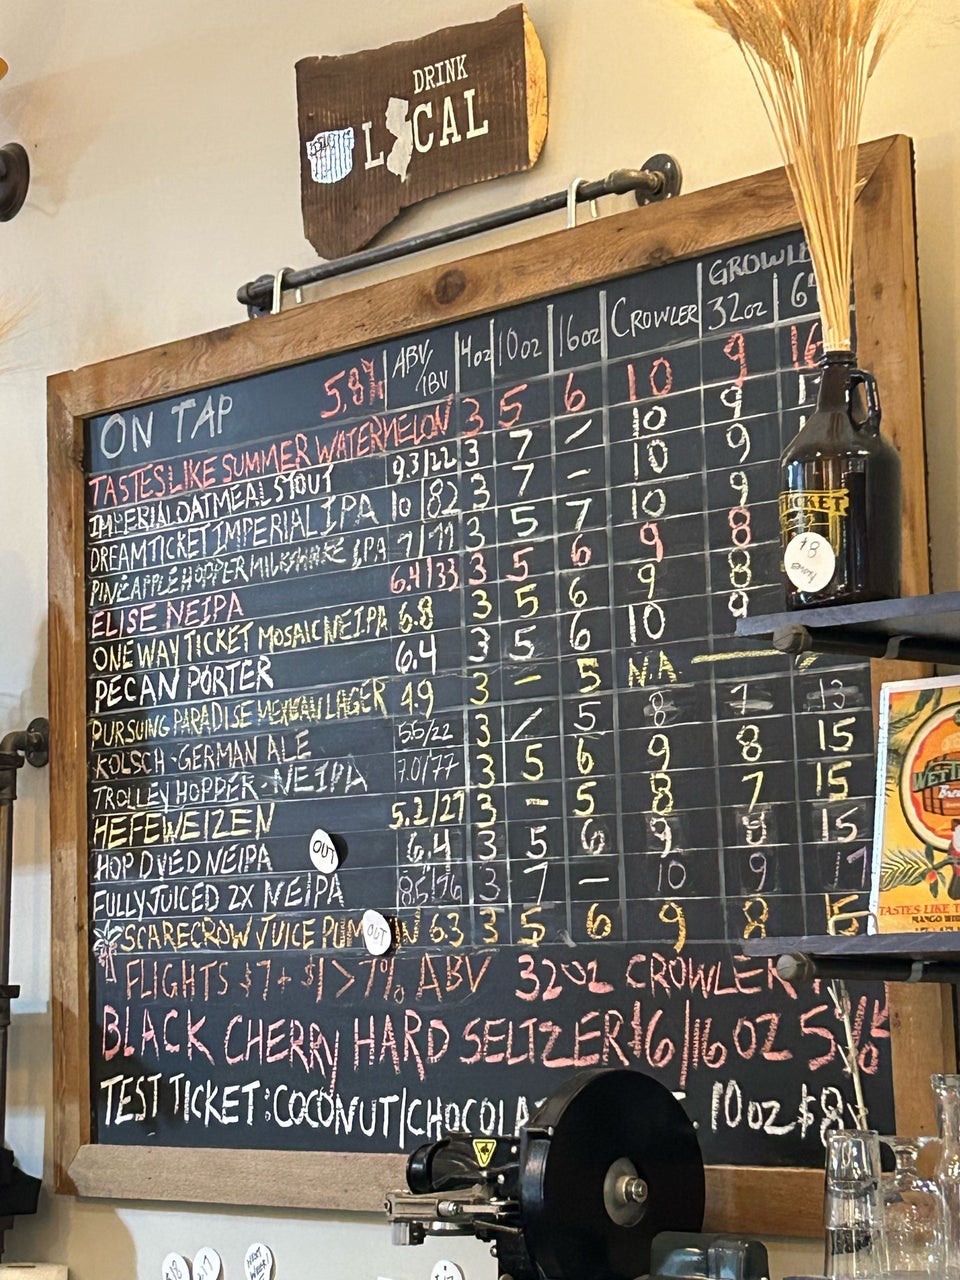 DRINK
LOCAL
GROWLE
ON TAP 5.8% ABV/IBV 4oz 10oz 16oz CROWLER 32oz
TASTES LIKE SUMMER WATERMELON 3 5 6 10 9 16
IMPERIAL OATMEAL STOUT 9.3/22 3 7 / 10 9
DREAM TICKET IMPERIAL IPA 10/82 3 7 - 10 9
PINEAPPLE HOPPER MILKSHAKE IPA 7/77 3 5 7 10 9
ELISE NEIPA 6.4/33 3 5 6 9 8
ONE WAY TICKET MOSAIC NEIPA 6.8 3 5 6 9 8
PECAN PORTER 6.4 3 5 6 10 9
PURSUING PARADISE MEXICAN LAGER 4.9 3 - 5 N.A.
KOLSCH - GERMAN ALE 5.5/22 3 / 5 8 7 13
TROLLEY HOPPER - NEIPA 7.0/77 3 5 6 9 8 15
HEFEWEIZEN 5.2/27 3 - 5 8 7 15
HOP DVIED NEIPA OUT 6.4 3 5 6 9 8 15
FULLY JUICED 2X NEIPA 8.5/76 3 7 - 10 9 17
SCARECROW JUICE PUM OUT N 6.3 3 5 6 9 8 15
FLIGHTS $7 + $1 > 7% ABV 32OZ CROWLER
BLACK CHERRY HARD SELTZER $6/16OZ 5%
TEST TICKET: COCONUT/CHOCOLA 10oz $8
TICKET
$8
EMPTY
WET TI
TASTES LIKE T
NEXT WEEK!